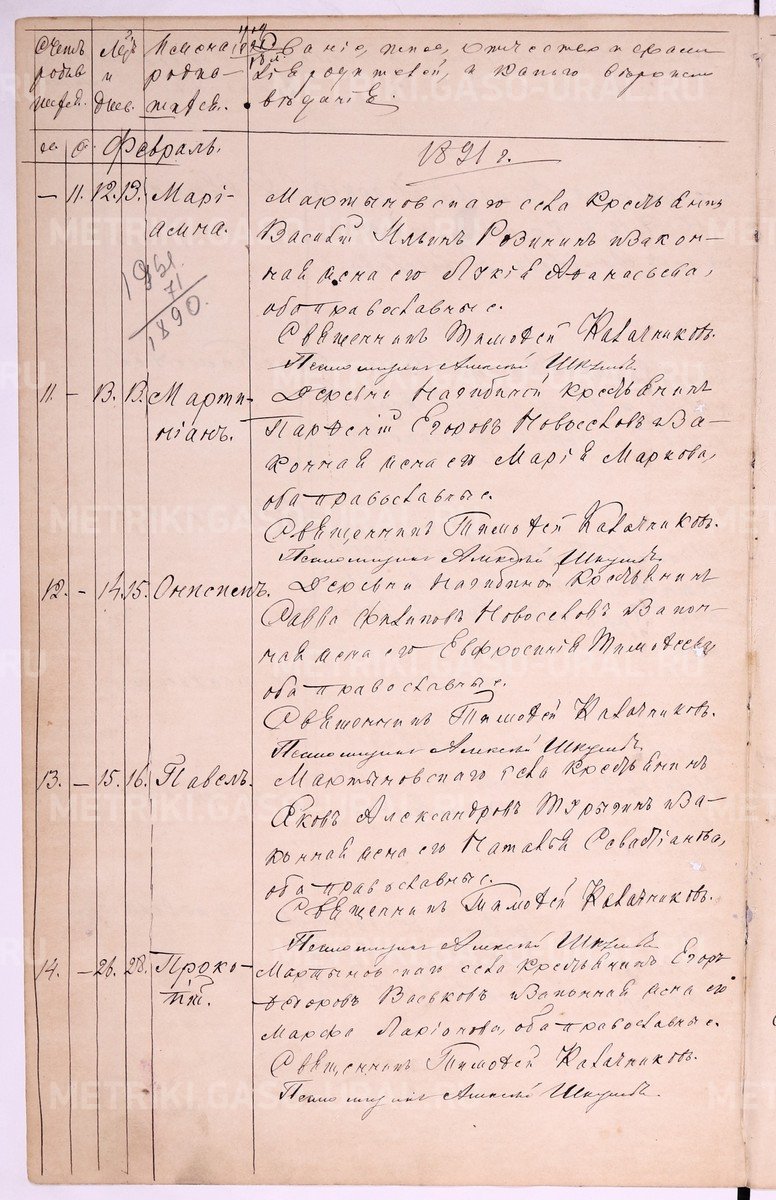 Счетъ Мѣс. Имена Званіе, имя, отчество и фами
родив и родив- лія родителей, и какого вѣроиспо
шихся. день. шихся. вѣданія.
м. ж. Февраль. 1891 г.
— 11. 12. 13. Марі- Мартыновскаго села крестьянинъ
амна. Василій Ильинъ Розинъ и закон-
1961. ная жена его Лукія Аѳанасьева,
71
1890. оба православные.
Священникъ Тимоѳей Калачниковъ.
Псаломщикъ Алексѣй
11. — 13. 13. Марти- Деревни Нагибиной крестьянинъ
ніанъ. Парѳеній Егоровъ Новоселовъ и за-
конная жена его Марія Маркова,
оба православные.
Священникъ Тимоѳей Калачниковъ.
Псаломщикъ Алексѣй
12. — 14. 15. Онисимъ. Деревни Нагибиной крестьянинъ
Савва Филиповъ Новоселовъ и закон-
ная жена его Евфросинія Тимоѳеева
оба православные.
Священникъ Тимоѳей Калачниковъ.
Псаломщикъ Алексѣй
13. — 15. 16. Павелъ. Мартыновскаго села крестьянинъ
Яковъ Александровъ и за-
конная жена его Наталія Севастіанова,
оба православные.
Священникъ Тимоѳей Калачниковъ.
Псаломщикъ Алексѣй
14. — 26. 28. Проко- Мартыновскаго села крестьянинъ Егоръ
пій. Ѳедоровъ Васьковъ и законная жена его
Марфа Ларіонова, оба православные.
Священникъ Тимоѳей Калачниковъ.
Псаломщикъ Алексѣй
METRIKI.GASO-URAL.RU